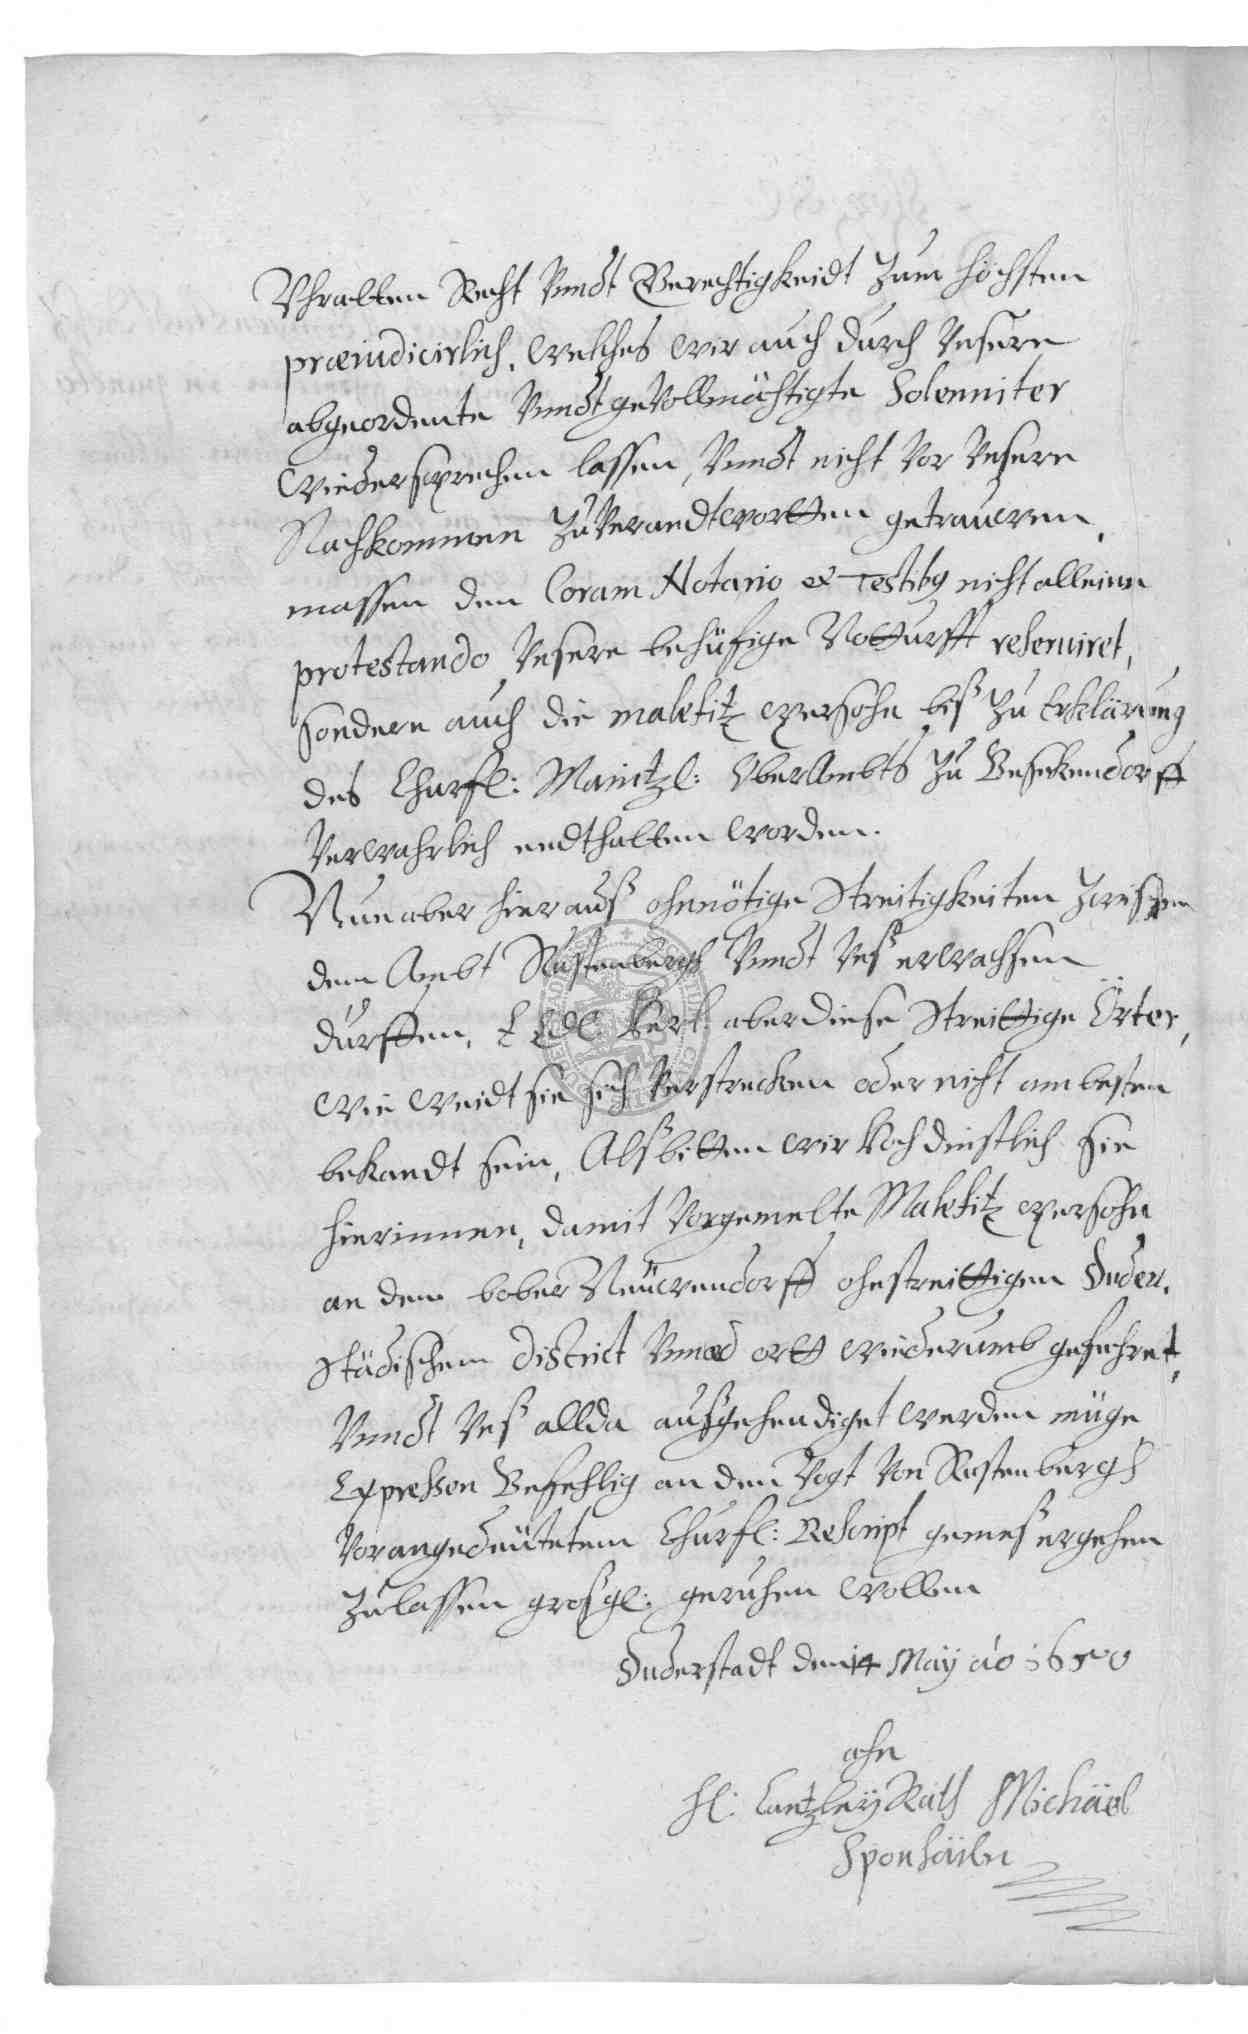 Vhralten Recht Vnndt Gerechtigkeidt zum höchsten
præiudicirlich, welches wir auch durch Vnsere
abgeordente Vnndt gevollmächtigte Solenniter
wiedersprechen lassen, Vnndt nicht vor Vnsern
Nachkommen zuverandtwortten getrauwen,
massen den Coram Notario et Testibq nicht alleinn
protestando Vnsere behüfige Notturfft reseruiret,
sondern auch die malefitz persohn biß zu Erklärung
des Churfl: Maintzl: OberAmbts zu Besekendorff
Verwahrlich endthalten worden.
Nun aber hierauß ohnnötige Streitigkeiten zwischen
dem Ambt Rustenbergh Vnndt Vnß erwachsen
durfften, E Edl. herl. aber diese Streittige Örter,
wie weidt sie sich Verstrecken oder nicht am besten
bekandt sein, Alß bitten wir hochdinstlich sie
hierinnen, damit Vorgemelte Malefitz persohn
an dem bober Neüwendorff ohnstreittigen Duder,
städischem district Vnnd ortt wiederumb gefuhret,
Vnndt Vnß allda außgehendiget werden müge,
Expressen Befehlig an den Vogt Von Rustenbergh
Vorangedeütetem Churfl: Rescript gemeß ergehen
zulassen großgl: geruhen wollen
Duderstadt den 14 May aô 1650
ahn
hl: Cantzley Rath Michäel